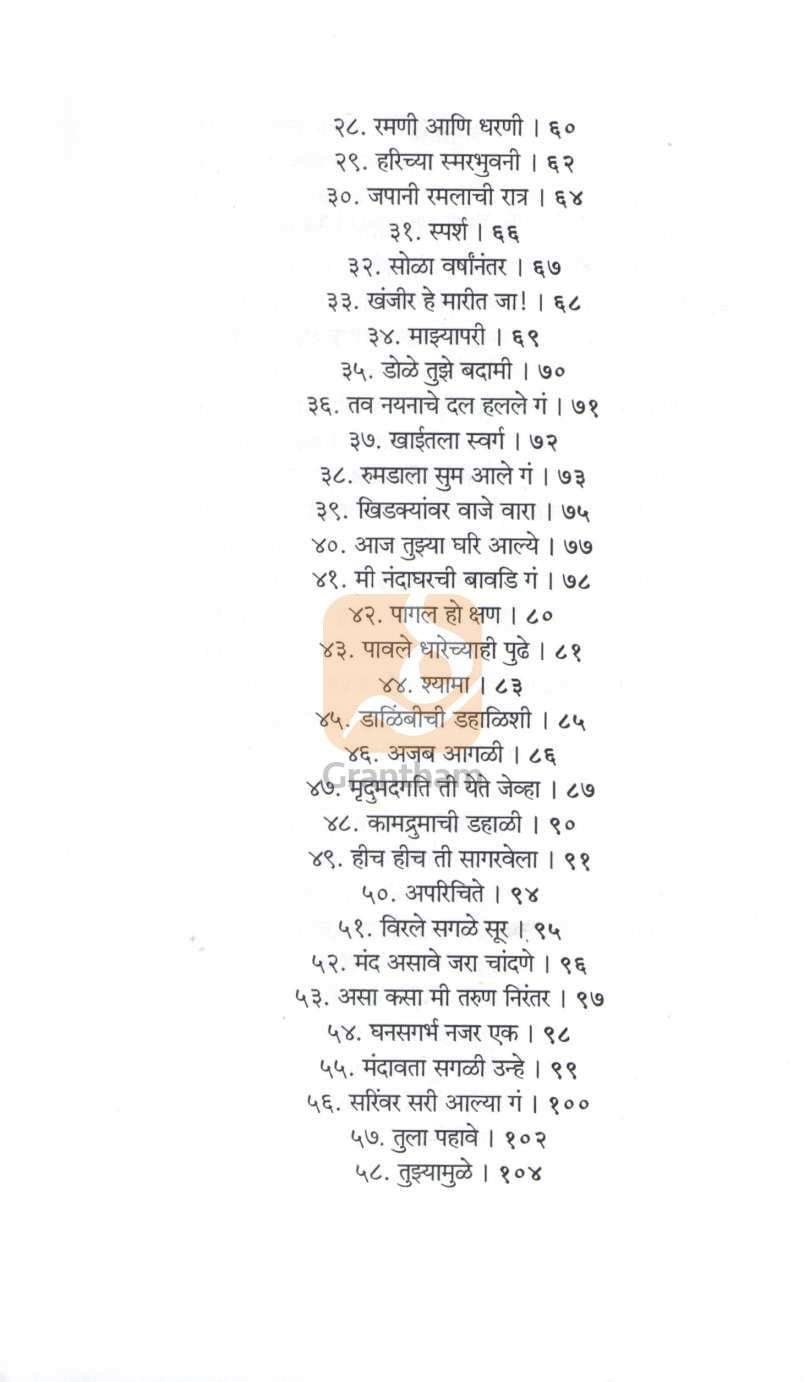 २८. रमणी आणि धरणी । ६०
२९. हरिच्या स्मरभुवनी । ६२
३०. जपानी रमलाची रात्र । ६४
३१. स्पर्श । ६६
३२. सोळा वर्षांनंतर । ६७
३३. खंजीर हे मारीत जा! । ६८
३४. माझ्यापरी । ६९
३५. डोळे तुझे बदामी । ७०
३६. तव नयनाचे दल हलले गं । ७१
३७. खाईतला स्वर्ग । ७२
३८. रुमडाला सुम आले गं । ७३
३९. खिडक्यांवर वाजे वारा । ७५
४०. आज तुझ्या घरि आल्ये । ७७
४१. मी नंदाघरची बावडि गं । ७८
४२. पागल हो क्षण । ८०
४३. पावले धारेच्याही पुढे । ८१
४४. श्यामा । ८३
४५. डाळिंबीची डहाळिशी । ८५
४६. अजब आगळी । ८६
Grantham
४७. मृदुमदगति ती येते जेव्हा । ८७
४८. कामद्रुमाची डहाळी । ९०
४९. हीच हीच ती सागरवेला । ९१
५०. अपरिचिते । ९४
५१. विरले सगळे सूर । ९५
५२. मंद असावे जरा चांदणे । ९६
५३. असा कसा मी तरुण निरंतर । ९७
५४. घनसगर्भ नजर एक । ९८
५५. मंदावता सगळी उन्हे । ९९
५६. सरिंवर सरी आल्या गं । १००
५७. तुला पहावे । १०२
५८. तुझ्यामुळे । १०४